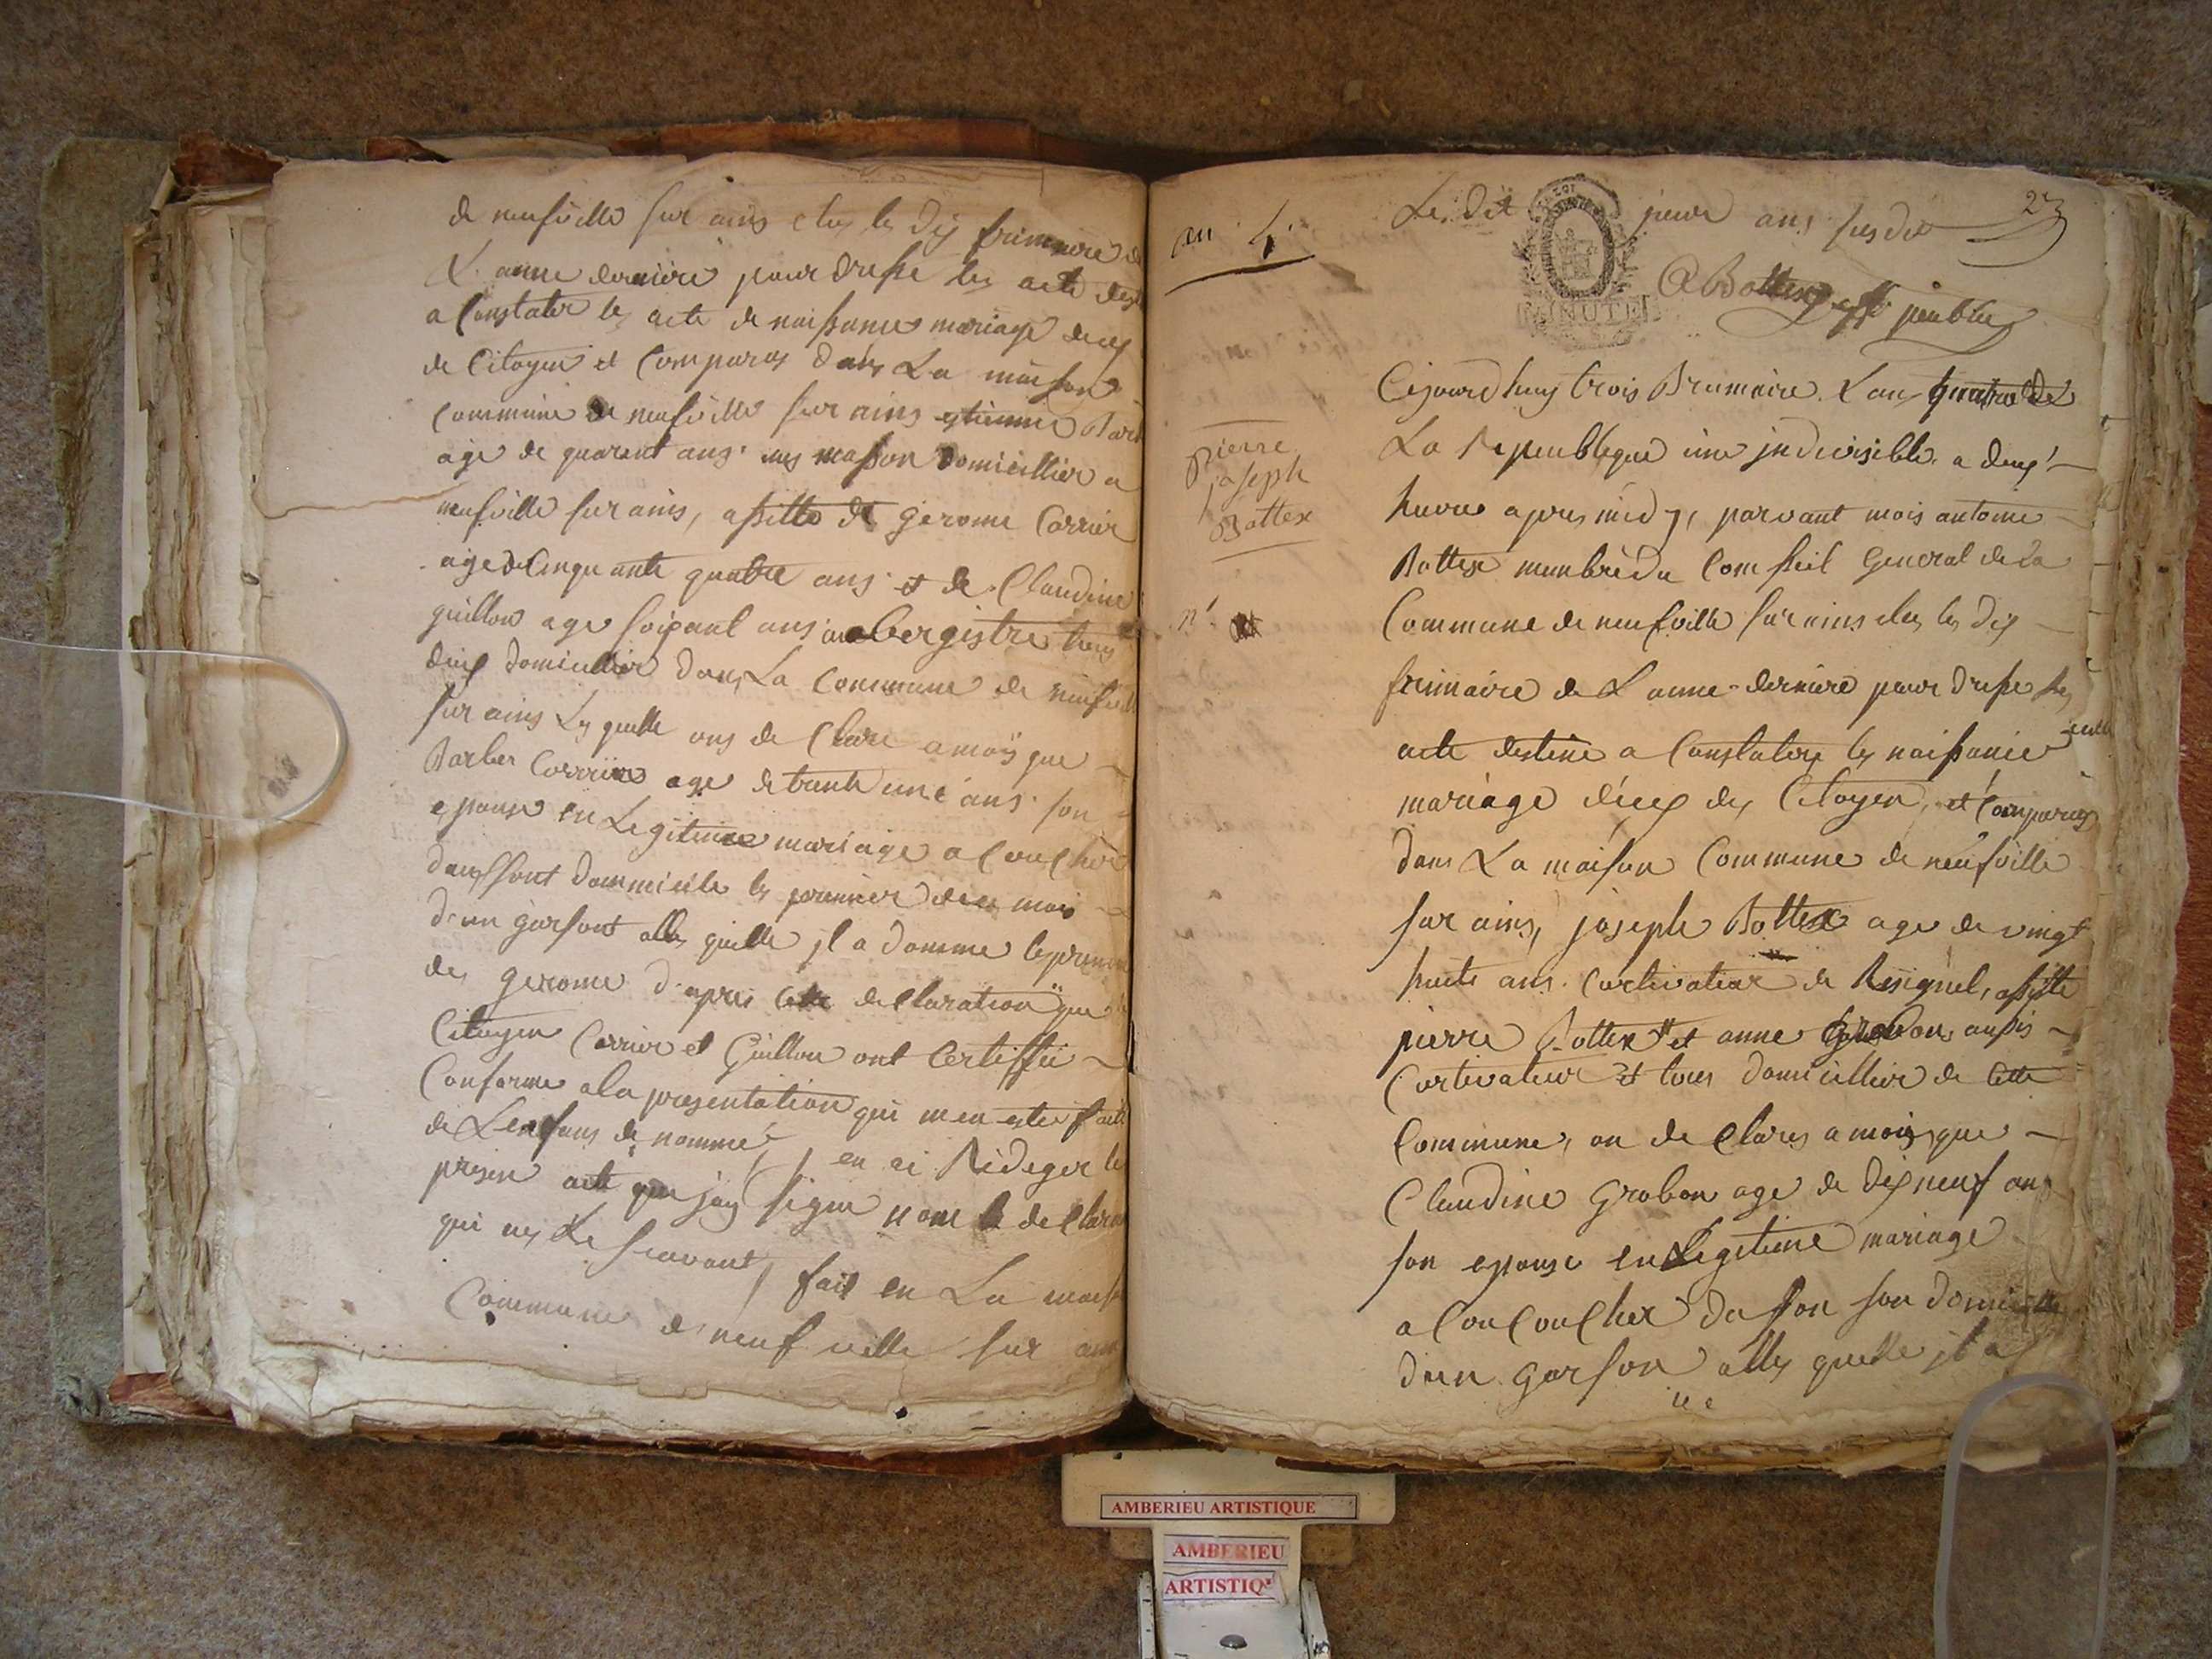 de neufville sur ains elus les dix frimaire de
L'anne derniere pour dresse les acte
a Constater les acte de naissance mariage deces
de Citoyen et Comparus dans La maison
Commune de neufville sur ains estienne
age de quarant ans masson domicillier a
neufville sur ains, assitte de gerome Carrier
age de Cinquante quatre ans et de Claudine
guillon age soixant ans aubergistre tous
deux domicillier dans La Commune de neufville
sur ains Les quelle ons de Clare a moy que
Barbes Carrier age de trante une ans son
epouse en Legitime mariage a Coucher
dans sont dommicile les premier de ce mois
d'un garsont alles quelle jl a domme le prenom
des gerome d'apres cette declaration que
Citoyen Carrier et Guillon ont Certiffié
Conforme a la presentation qui men estes faite
de Lenfans de nommé, en ai Rédeger le
presen acte que jay signe nom le declarant
qui nes Le scavant, fait en La maison
Commune de neuf ville sur ains
an 4.
Le dit jour ans susdit 23
LOI
MINUTE
A Bottex off publier
Cejourdhuy trois Brumaire Lan quatre de
La Republique une jndivisible a deux
heure apres midy, parvant mois antoine
Bottex membre du Comseil General de La
Commune de neufville sur ains elus les dix
frimaire de L'anne derniere pour dresse les
acte destine a Constater les naissance
mariage décex des Citoyen, et Comparus
dans La maison Commune de neufville
sur ains, joseph Bottex age de vingt
huits ans Cortivateur de Resignel, assitte
pierre Bottex et anne Grobon aussis
Cortivateur et tous domicillier de Cette
Commune, on de Clares a mois que
Claudine Grobon age de dix neuf ans
son epouse en Legitime mariage
a Cou Coucher da son son domicille
dun garson alles quelle jl a
pierre
joseph
Bottex
n.
AMBERIEU ARTISTIQUE
AMBERIEU
ARTISTIQ